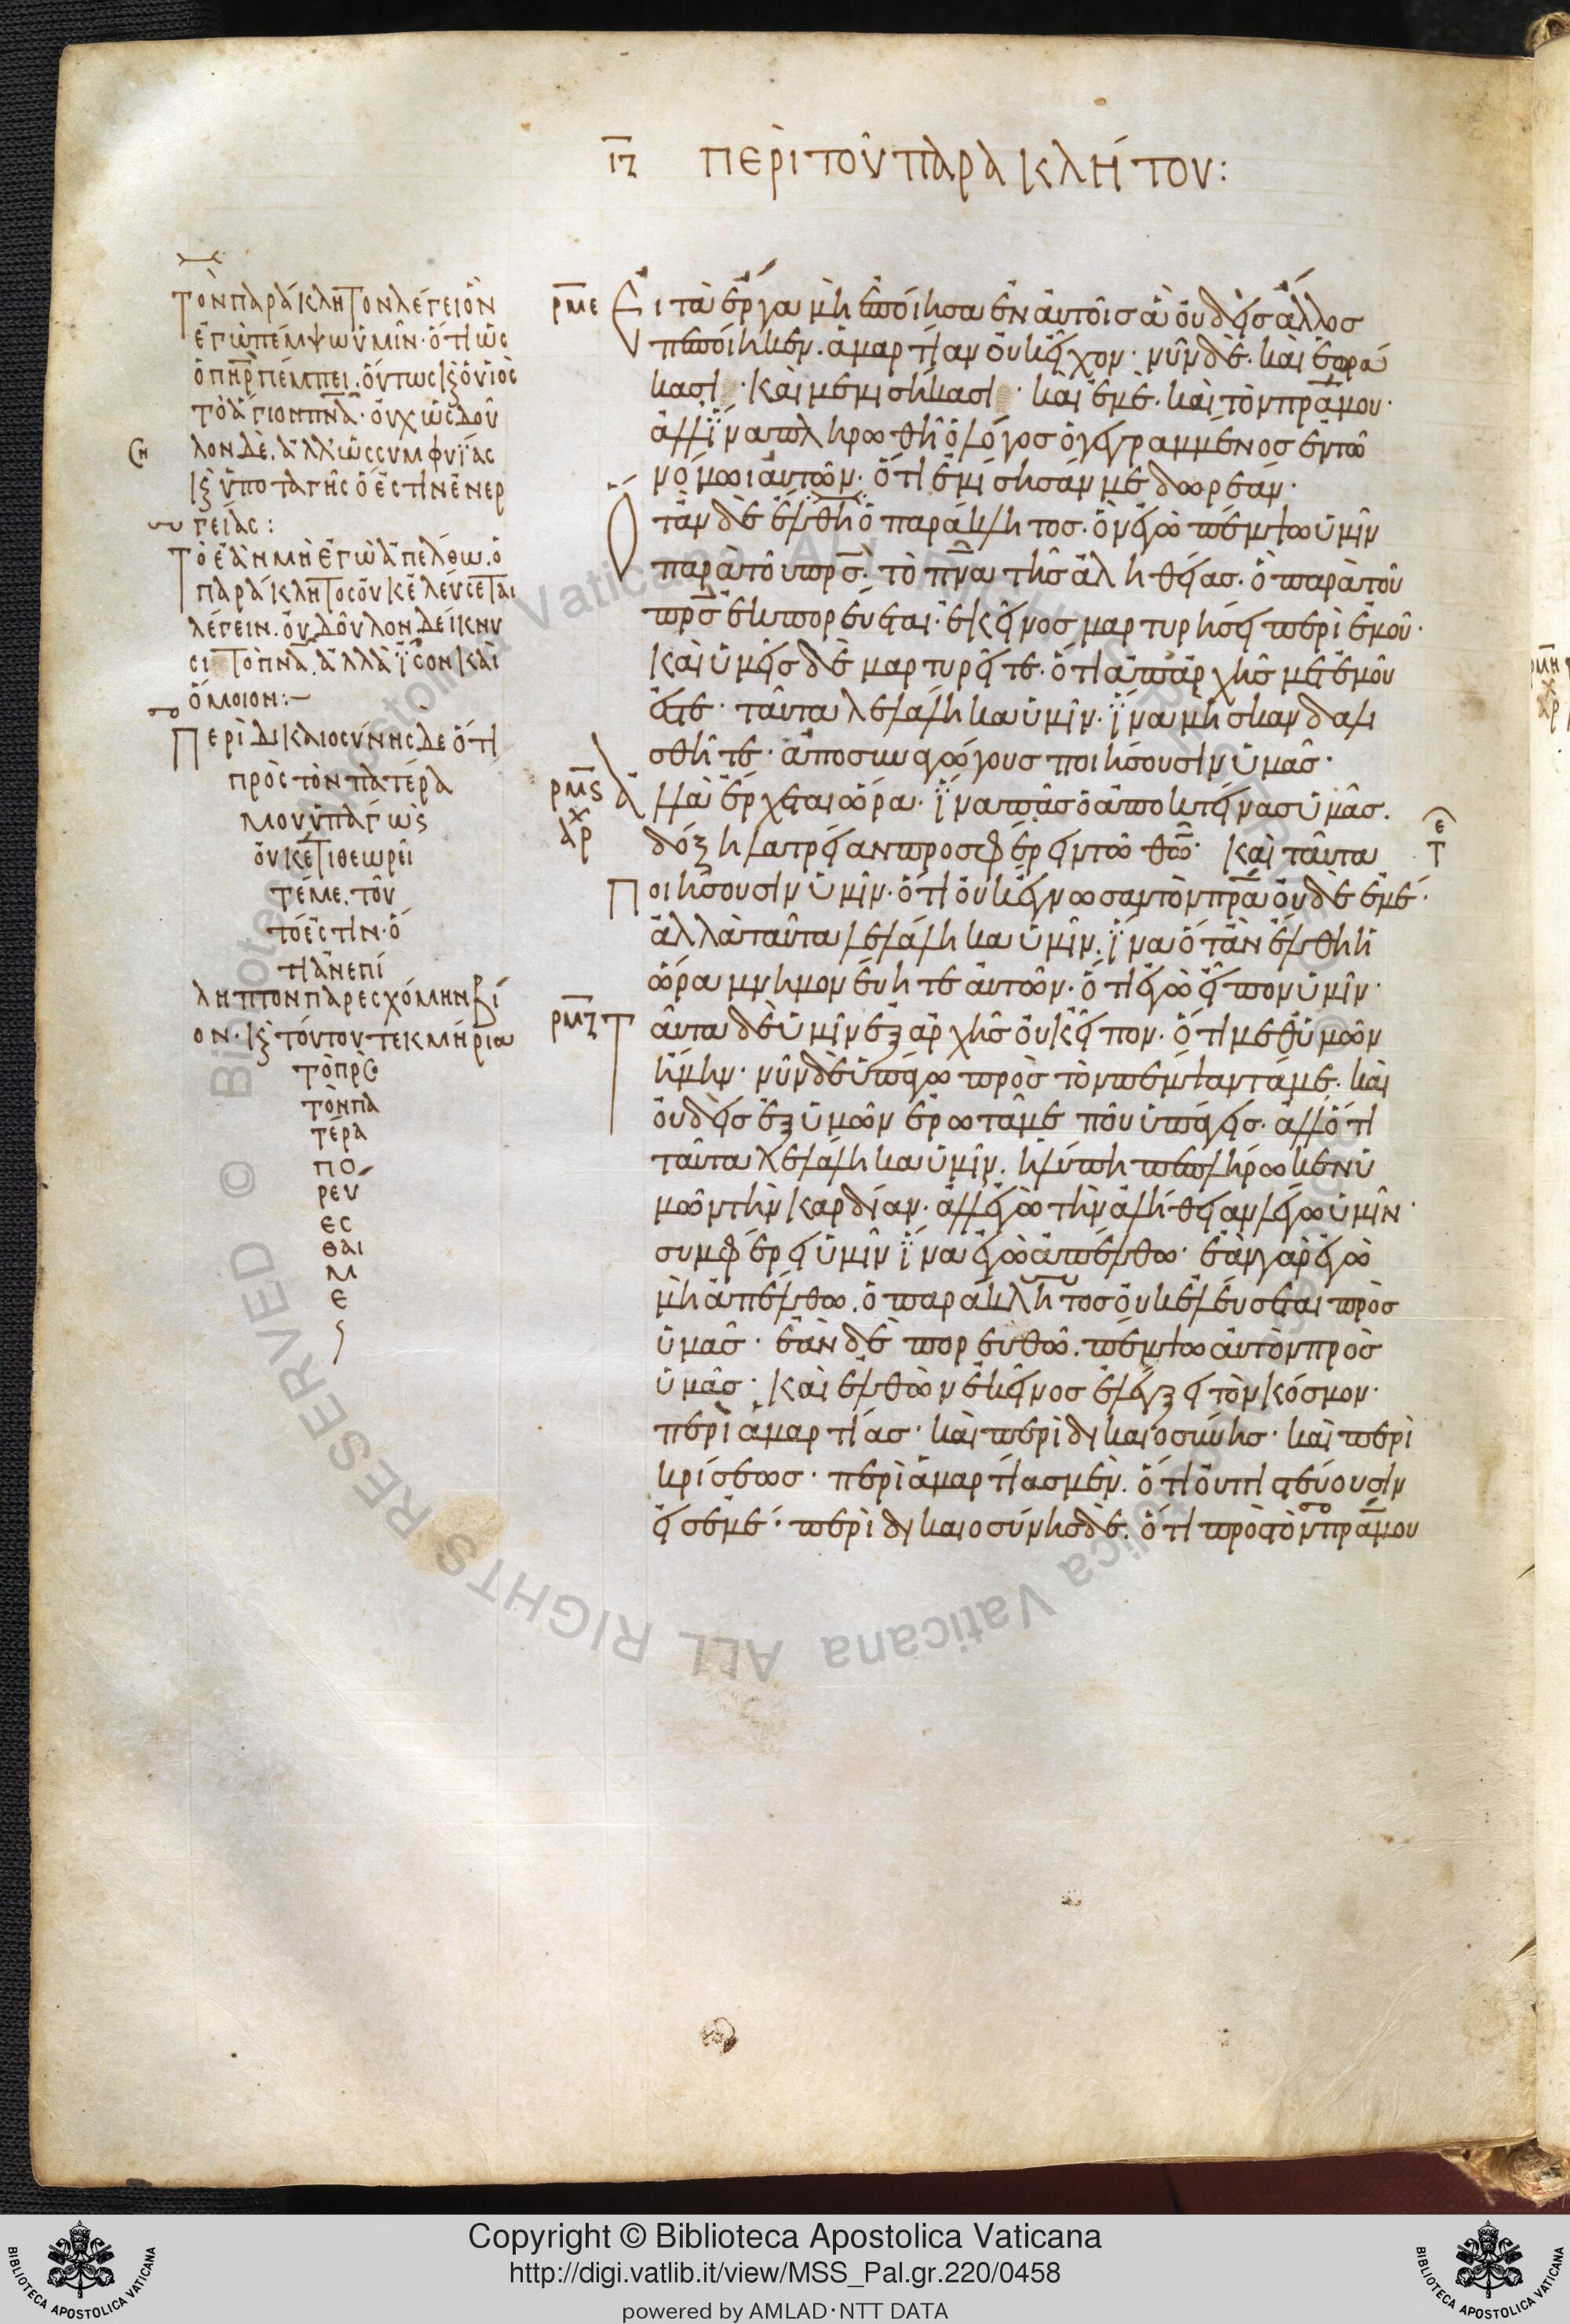 ιζ περὶ τοῦ παρακλήτου:
Τὸν παράκλητον λέγει ὃν
ἐγὼ πέμψω ὑμῖν· ὅτι ὡς
ὁ πηρ πέμπει. οὕτως κ ὁ υἱὸς
τὸ ἅγιον πνα· οὐχ ὡς δοῦ
λον δὲ. ἀλλ' ὡς συμφυΐας
κ ὑποταγῆς ὅ ἐστιν ἐνερ
γείας:
Τὸ ἐὰν μὴ ἐγὼ ἀπέλθω. ὁ
παράκλητος οὐκ ἐλεύσεται
λέγειν. οὐ δοῦλον δείκνυ
σι τὸ πνα. ἀλλὰ ἴσον καὶ
ὅμοιον:
Περὶ δικαιοσύνης δὲ ὅτι
πρὸς τὸν πατέρα
μου ὑπάγω κς
οὐκέτι θεωρεῖ
τέ με. τοῦ
τό ἐστιν· ὁ
τι ἀνεπί
ληπτον παρεσχόμην βί
ον· κ τούτου τεκμήρια
τὸ πρὸς
τὸν πα
τέρα
πο
ρεύ
εσ
θαι
μ
ε
ρμε Εἰ τὰ ἔργα μὴ ἐποίησα ἐν αὐτοῖς ἃ οὐδεὶς ἄλλος
πεποίηκεν. ἁμαρτίαν οὐκ εἶχον· νῦν δὲ. καὶ ἑορά
κασι· καὶ μεμισήκασι· καὶ ἐμὲ. καὶ τὸν πρα μου·
ἀλλ' ἵνα πληρωθῆ ὁ λόγος ὁ γεγραμμένος ἐν τῶ
νόμωι αὐτῶν· ὅτι ἐμίσησάν με δωρεάν·
Ὅταν δὲ ἔλθη ὁ παράκλητος. ὃν ἐγὼ πέμψω ὑμῖν
παρὰ τοῦ πρς. τὸ πνα τῆς ἀληθείας. ὃ παρὰ τοῦ
πρς ἐκπορεύεται· ἐκεῖνος μαρτυρήσει περὶ ἐμοῦ·
καὶ ὑμεῖς δὲ μαρτυρεῖτε. ὅτι ἀπ' ἀρχῆς μετ' ἐμοῦ
ἐστε· ταῦτα λελάληκα ὑμῖν. ἵνα μὴ σκανδαλι
σθῆτε· ἀποσυναγώγους ποιήσουσιν ὑμᾶς·
ρμς ἀλλὰ ἔρχεται ὥρα· ἵνα πᾶς ὁ ἀποκτείνας ὑμᾶς.
δόξη λατρείαν προσφέρειν τῶ θω· καὶ ταῦτα
ποιήσουσιν ὑμῖν· ὅτι οὐκ ἔγνωσαν τὸν πρα οὐδὲ ἐμέ·
ἀλλὰ ταῦτα λελάληκα ὑμῖν. ἵνα ὅταν ἔλθη ἡ
ὥρα μνημονεύητε αὐτῶν· ὅτι ἐγὼ εἶπον ὑμῖν·
ρμζ Ταῦτα δὲ ὑμῖν ἐξ ἀρχῆς οὐκ εἶπον. ὅτι μεθ' ὑμῶν
ἤμην· νῦν δὲ ὑπάγω πρὸς τὸν πέμψαντά με. καὶ
οὐδεὶς ἐξ ὑμῶν ἐρωτᾶ με ποῦ ὑπάγεις· ἀλλ' ὅτι
ταῦτα λελάληκα ὑμῖν. ἡ λύπη πεπλήρωκεν ὑ
μῶν τὴν καρδίαν· ἀλλ' ἐγὼ τὴν ἀλήθειαν λέγω ὑμῖν·
συμφέρει ὑμῖν ἵνα ἐγὼ ἀπέλθω· ἐὰν γὰρ ἐγὼ
μὴ ἀπέλθω. ὁ παράκλητος οὐκ ἐλεύσεται πρὸς
ὑμᾶς· ἐὰν δὲ πορευθῶ. πέμψω αὐτὸν πρὸς
ὑμᾶς· καὶ ἐλθὼν ἐκεῖνος ἐλέγξει τὸν κόσμον·
περὶ ἁμαρτίας· καὶ περὶ δικαιοσύνης· καὶ περὶ
κρίσεως· περὶ ἁμαρτίας μὲν. ὅτι οὐ πιστεύουσιν
εἰς ἐμέ· περὶ δικαιοσύνης δὲ. ὅτι πρὸς τὸν πρα μου
Copyright © Biblioteca Apostolica Vaticana
http://digi.vatlib.it/view/MSS_Pal.gr.220/0458
powered by AMLAD·NTT DATA